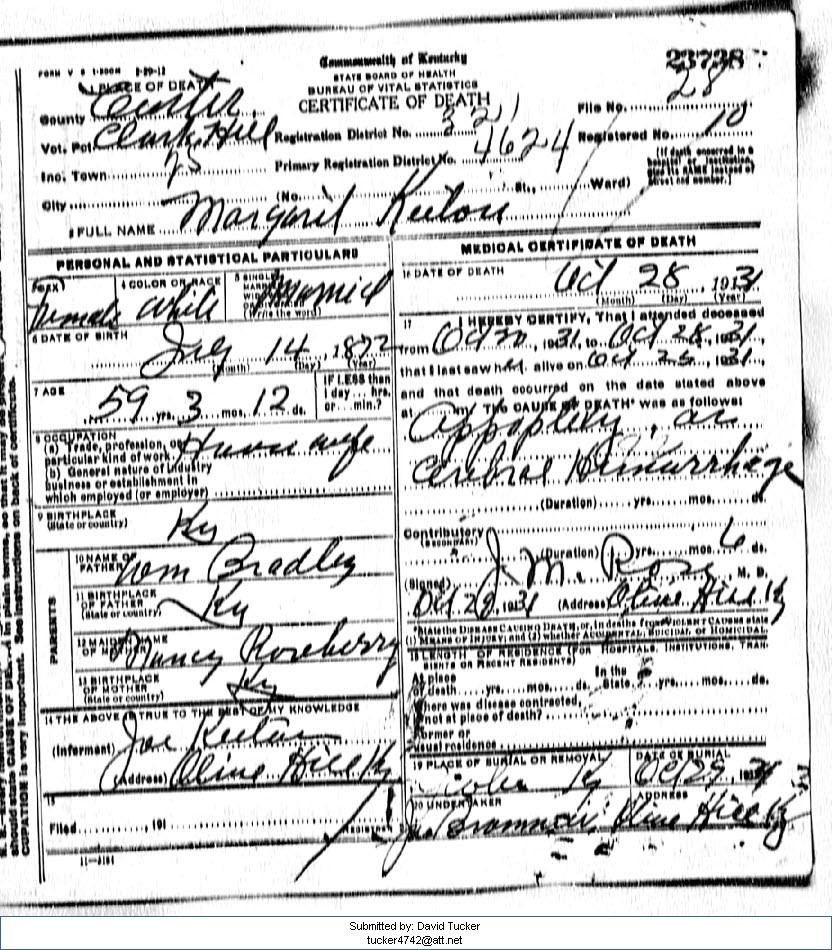 FORM V S 1-500M 8-29-12
Commonwealth of Kentucky
23738
STATE BOARD OF HEALTH
BUREAU OF VITAL STATISTICS
CERTIFICATE OF DEATH
1 PLACE OF DEATH
County Carter
File No. 28
Vot. Pct. Clark Hill Registration District No. 321 Registered No. 10
Inc. Town 75 Primary Registration District No. 4624
City (No. St., Ward)
[If death occurred in a hospital or institution, give its NAME instead of street and number.]
2 FULL NAME Margaret Keeton
PERSONAL AND STATISTICAL PARTICULARS
SEX Female
4 COLOR OR RACE White
5 SINGLE Married
(Write the word)
6 DATE OF BIRTH
July 14, 1872
(Month) (Day) (Year)
7 AGE
59 yrs. 3 mos. 12 ds.
IF LESS than 1 day... hrs. or... min.?
8 OCCUPATION
(a) Trade, profession, or particular kind of work House wife
(b) General nature of industry
business or establishment in
which employed (or employer)
9 BIRTHPLACE
(State or country) Ky
PARENTS
10 NAME OF FATHER Wm Bradley
11 BIRTHPLACE OF FATHER
(State or country) Ky
12 MAIDEN NAME OF MOTHER Nancy Roseberry
13 BIRTHPLACE OF MOTHER
(State or country) Ky
14 THE ABOVE IS TRUE TO THE BEST OF MY KNOWLEDGE
(Informant) Joe Keeton
(Address) Olive Hill Ky
15
Filed 191
REGISTRAR
11-3184
MEDICAL CERTIFICATE OF DEATH
16 DATE OF DEATH
Oct 28, 1931
(Month) (Day) (Year)
17 I HEREBY CERTIFY, That I attended deceased
from Oct 20, 1931, to Oct 28, 1931,
that I last saw her alive on Oct 25, 1931,
and that death occurred on the date stated above
at m. The CAUSE OF DEATH* was as follows:
Appoplexy, or
Cerebral Hemorrhage
(Duration) yrs. mos. ds.
Contributory
(SECONDARY)
(Duration) yrs. mos. 6 ds.
(Signed) J. M. Rose, M. D.
Oct 29, 1931 (Address) Olive Hill Ky
*State the DISEASE CAUSING DEATH, or, in deaths from VIOLENT CAUSES state
(1) MEANS OF INJURY; and (2) whether ACCIDENTAL, SUICIDAL or HOMICIDAL.
18 LENGTH OF RESIDENCE (FOR HOSPITALS, INSTITUTIONS, TRANSIENTS OR RECENT RESIDENTS)
At place of death yrs. mos. ds. In the State yrs. mos. ds.
Where was disease contracted,
if not at place of death?
Former or
usual residence
19 PLACE OF BURIAL OR REMOVAL
Ky
DATE OF BURIAL
Oct 29 1931
20 UNDERTAKER
ADDRESS
Olive Hill Ky
Submitted by: David Tucker
tucker4742@att.net